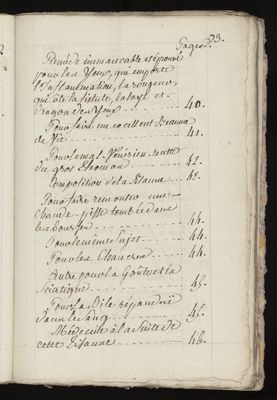 73.
Pages.
Remede immancable et éprouvé
pour les Yeux, qui emporte
l'Inflammation, la rougeur,
qui ôte la fistule, la taye et
dragon des Yeux ------ 40.
Pour faire un excellent Beaume
de Vie ------ 41.
Pour le mal Vénérien recette
du gros Thomas ------ 42.
Composition de la Tisanne --- 43.
Pour faire remonter une
chaude pisse tombée dans
les bourses ------ 44.
Pour le même Sujet ------ 44.
Pour les Chancres ------ 44.
Autre pour la Goutte et la
Sciatique ------ 45.
Pour la Bile répandue
dans le Sang ------ 45.
Médecine à la Suite de
cette Tisanne ------ 46.